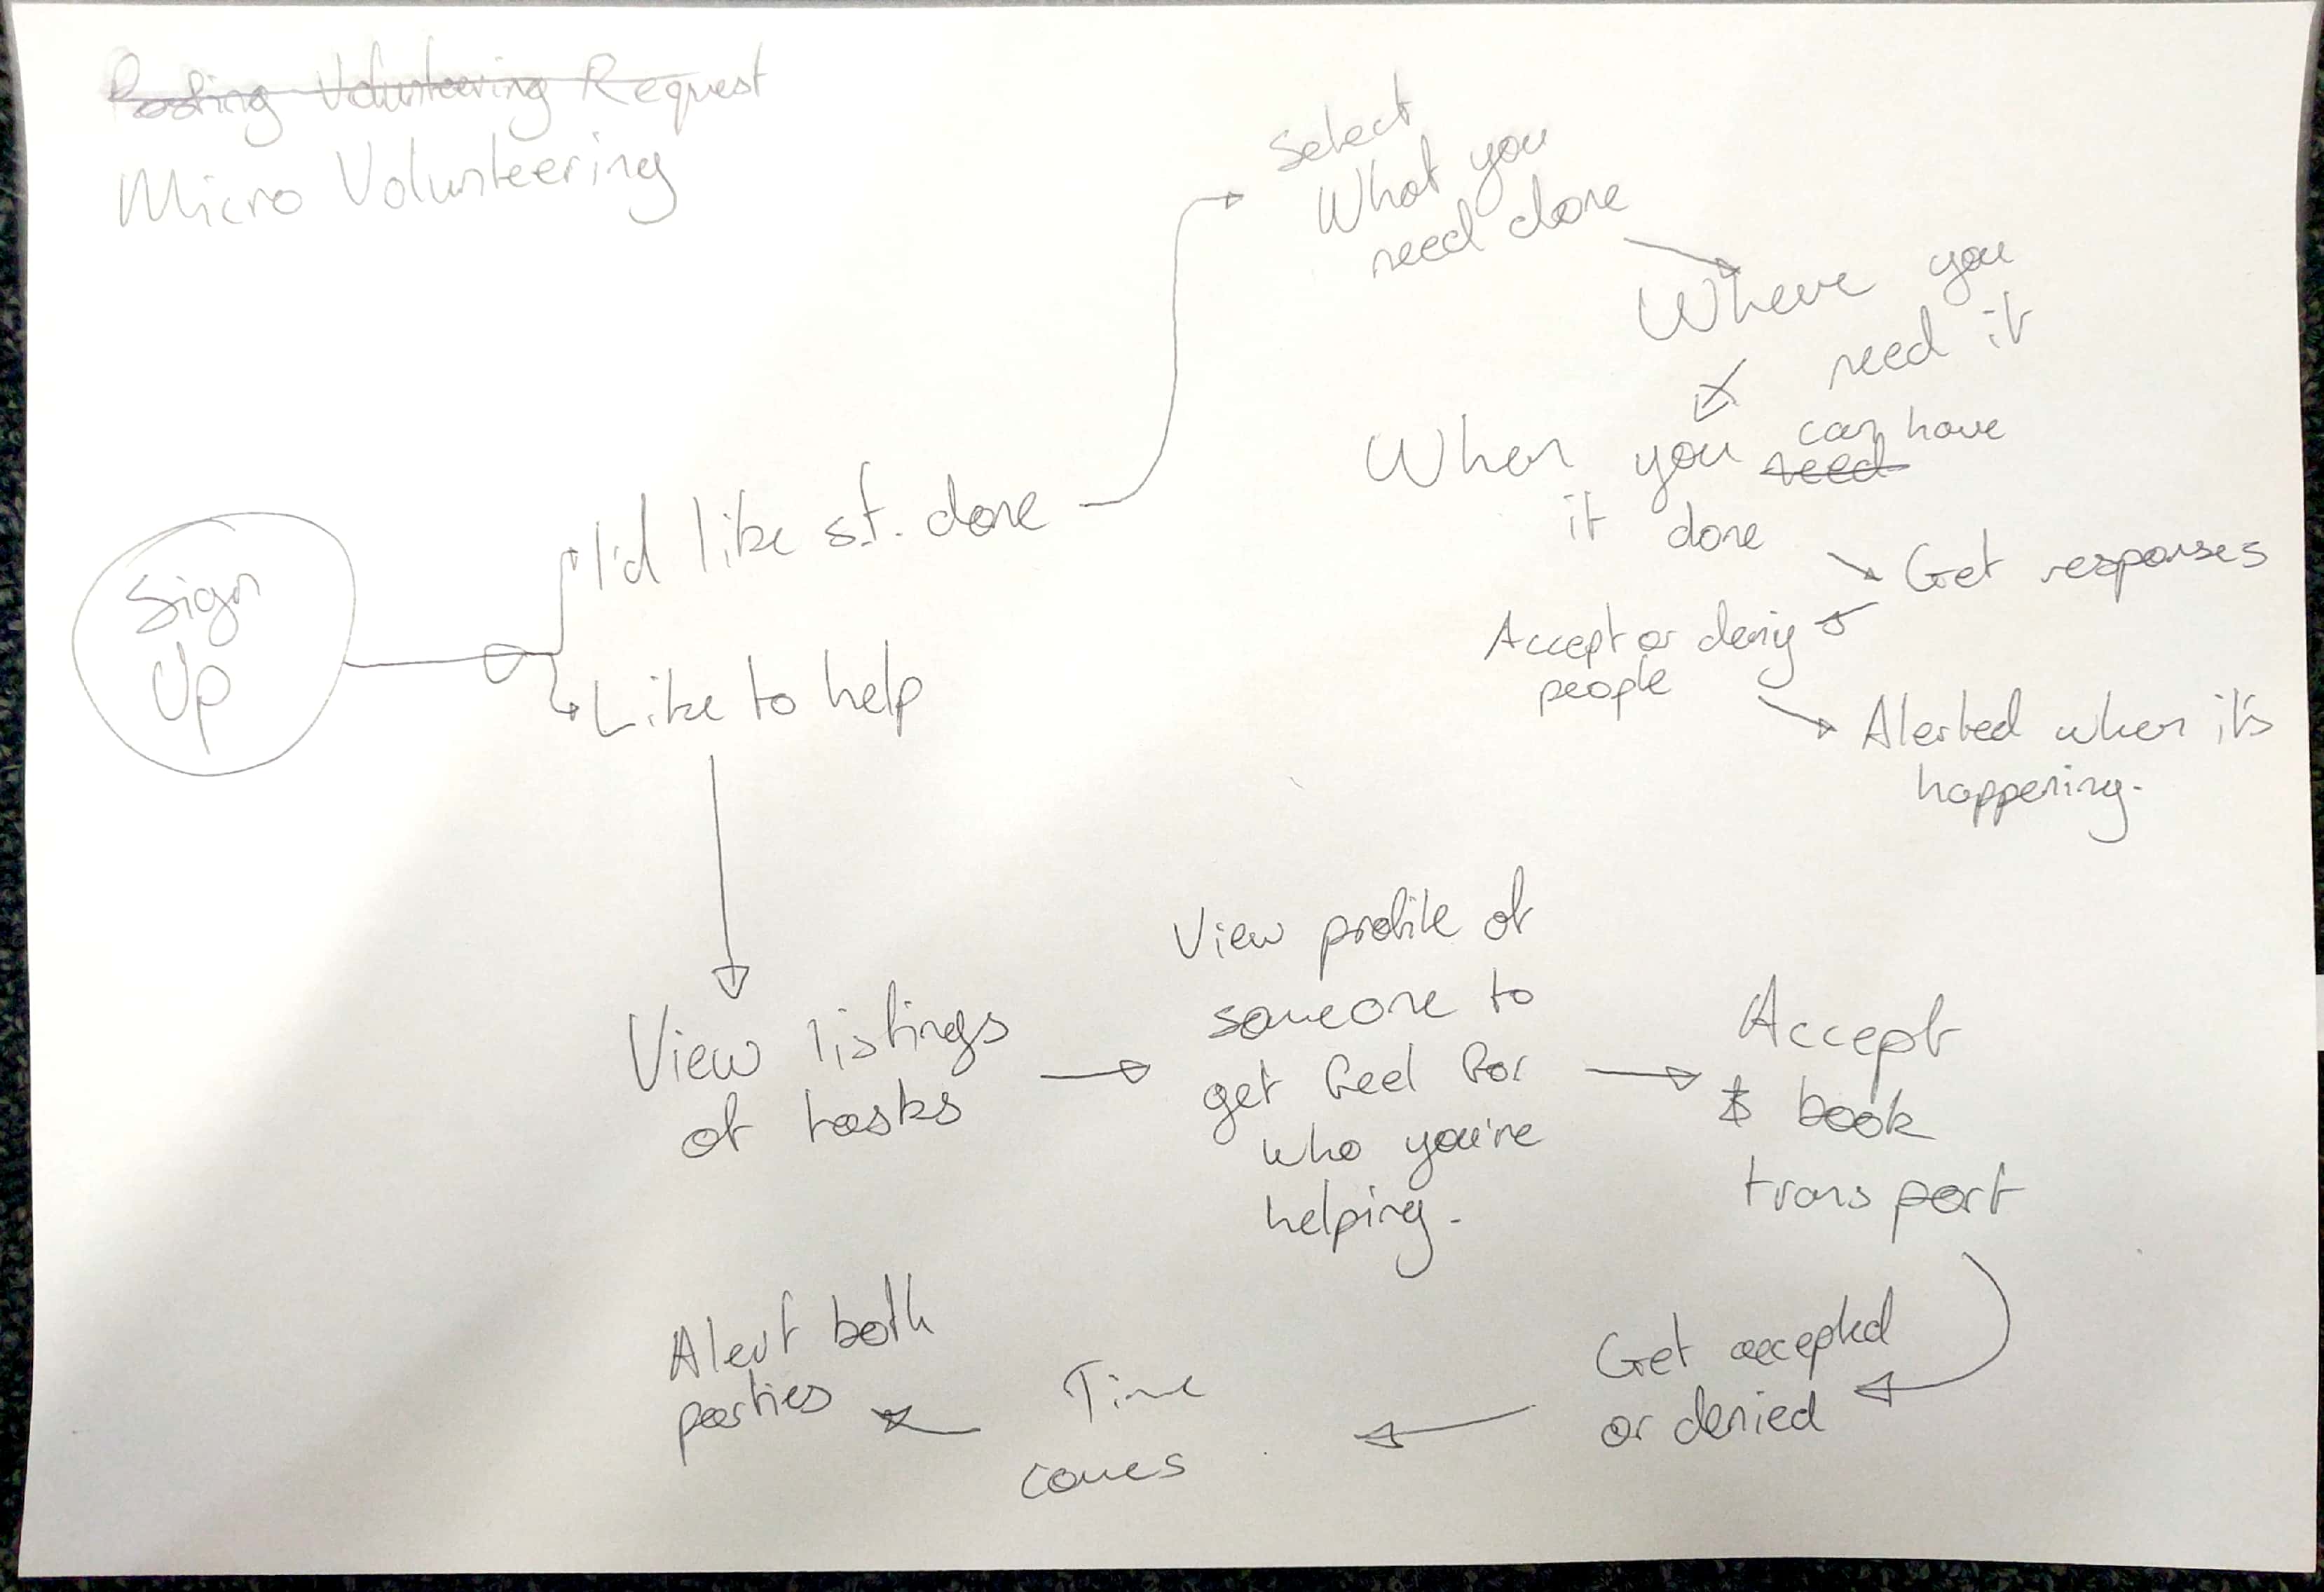 Posting Volunteering Request
Micro Volunteering
Sign
Up
I'd like st. done
Like to help
Select
What you
need done
Where you
need it
When you need can have
it done
Get responses
Accept or deny
people
Alerted when it's
happening.
View listings
of tasks
View profile of
someone to
get feel for
who you're
helping.
Accept
& book
transport
Get accepted
or denied
Time
comes
Alert both
parties